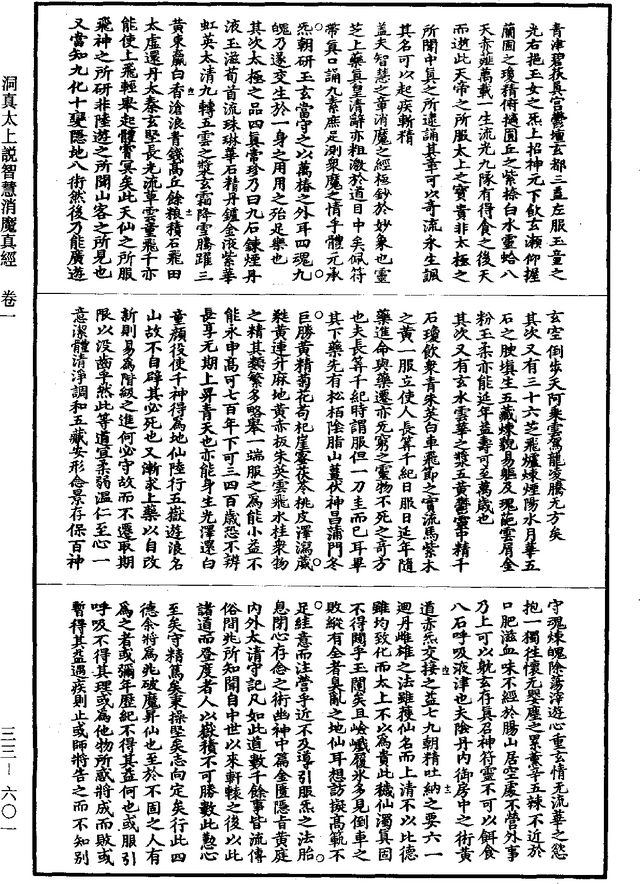 青津碧荻真宮鬱壇玄都二孟左服玉童之
光右挹玉女之炁上招神元下飲玄瀨仰握
蘭園之瓊精俯擿圓丘之紫柰白水靈蛤八
天赤薤萬載一生流光九隊有得食之後天
而遊此天帝之所服太上之寶貴非太極之
所聞中真之所逮誦其章可以奇流永生諷
其名可以起疾斬精
蓋夫智慧之童消魔之經極鈔於妙象也靈
芝上藥真皇清辭亦粗激於道目中矣佩符
帶真口誦九素庶足測衆魔之情乎體元承
炁朝研玉玄當守之以萬椿之外耳四魂九
魄乃遂交生於一身之用用之殆足樂也
其次太極之品四真常珍乃曰九石鍊煙丹
液玉滋荀首流珠琳華石精丹鑪金液紫華
虹英太清九轉五雲之漿玄霜降雪騰躍三
黃東瀛白香滄浪青錢高丘餘粮積石飛田
太虛還丹太秦玄堅長光流草雲童飛千亦
能使上飛輕舉起體霄冥矣此天仙之所服
飛神之所研非陸遊之所聞山客之所見也
又當知九化十變隱地八術然後乃能廣遊
玄空倒步天阿乘雲駕龍淩騰无方矣
其次又有三十六芝飛爐煉煙陽水月華五
石之腴填生五藏煉貌易軀及瑰葩雲屑全
粉玉柔亦能延年益壽可至萬歲也
其次又有玄水雲華之漿五黃鬱靈中精千
石瓊飲衆青朱英白車飛節之實流馬紫木
之黃一服立使人長筭千紀日服日延年隨
藥進命與藥遷亦死窮之靈物不死之奇方
也夫長筭千紀時謂服但一刀圭而已耳畢
其下藥先有松柏陰脂山薑伏神昌蒲門冬
巨勝黃精菊花苟杞崖蜜茯苓桃皮澤瀉葳
蕤黃連升麻地黃赤板朱英雲飛水桂衆物
之精其類繁多略舉一端服之為能小益不
能永申高可七百年下可三四百歲恐不辨
長享无期上昇青天也亦能身生光澤還白
童顏役使千神得為地仙陸行五嶽遊浪名
山故不自辟其必死也又漸求上藥以自改
新則易為階級之進何必守故而不遷取期
限以沒齒乎然此等道宜柔弱溫仁至心一
意潔體清淨調和五藏安形念景存保百神
守魂煉魄除蕩滓遊心重玄情无流華之慾
抱一獨往懷元嬰塵之累葷辛五辣不近於
口肥滋血味不經於腸山居空處不營外事
乃上可以躭玄存真召神符靈不可以餌食
八石呼吸液津也夫陰丹内御房中之術黃
道赤炁交接之益七九朝精吐納之要六一
迴丹雌雄之法雖獲仙名而上清不以比德
雖均致化而太上不以為貴此穢仙濁真固
不得闚乎玉闕矣且嶮巇履氷多見倒車之
敗縱有全者臭亂之地仙耳想訪擬高軏不
足絓意而注營乎近不及導引服炁之法胎
息閉心存念之術幽神中篇金匱隱旨黃庭
内外太清守記凡如此道數千餘事皆流傳
俗間兆所知聞自中世以來軒轅之後以此
諸道而登度者人以嶽積不可勝數此懃心
至矣守精篤矣秉操堅矣志向定矣行此四
德余將為兆破魔昇仙也至於不固之人有
為之者或彌年歷紀不得其益何也或服引
呼吸不得其理或為他物所惑將成而敗或
暫得其益遇疾則止或師將告之而不知別
洞真太上説智慧消魔真經　卷一
三三—六〇一